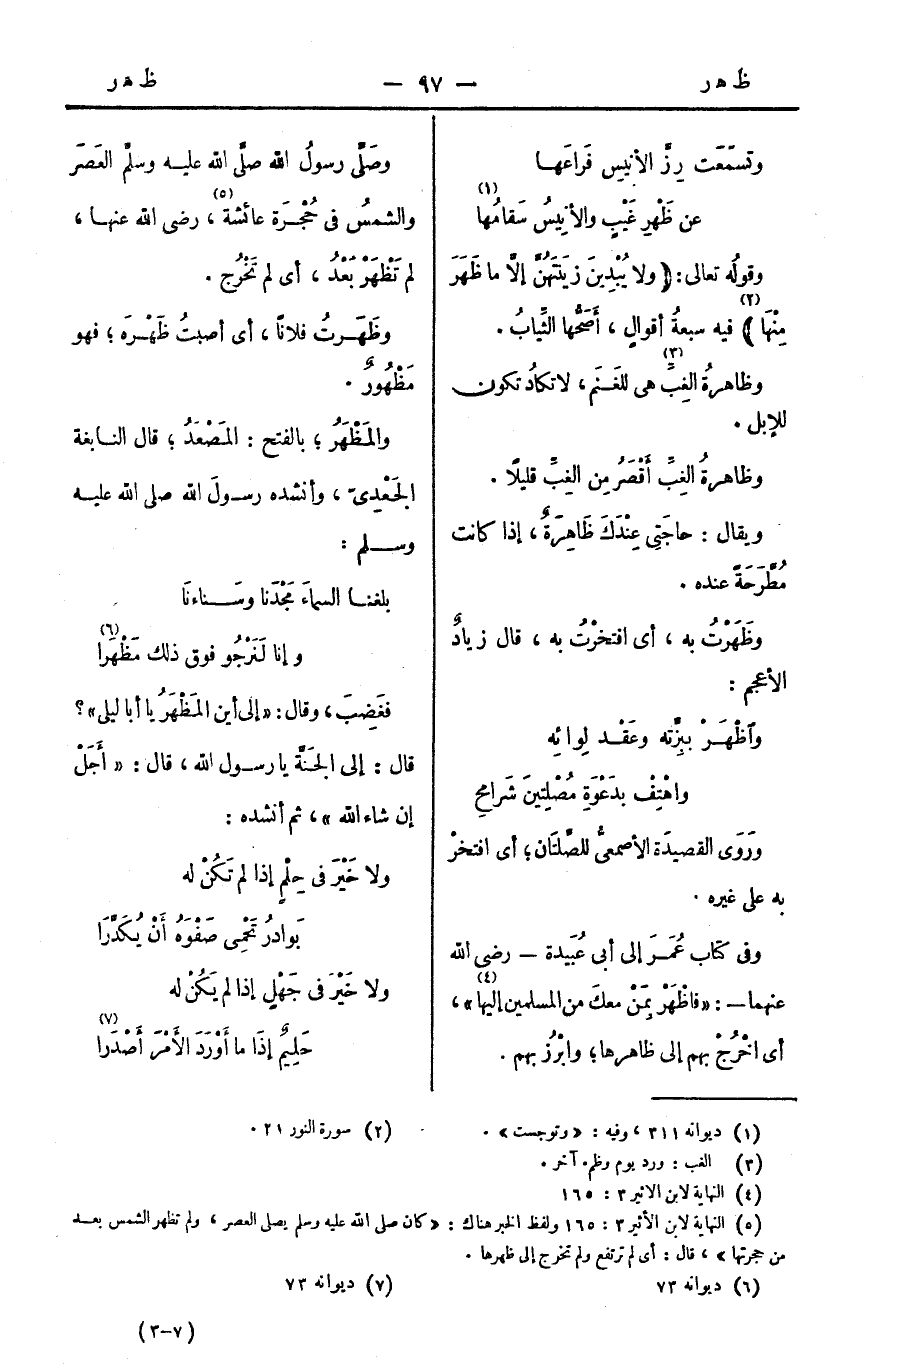 ظهر — ٩٧ — ظهر
وتَسَمَّعَت رِزَّ الأنيسِ فَرَاعَها
عن ظَهْرِ غَيْبٍ والأنِيسُ سَقامُها (١)
وقولُه تعالى: ﴿ ولا يُبْدِينَ زِينَتَهُنَّ إلَّا ما ظَهَرَ
مِنْهَا ﴾ (٢) فيه سبعةُ أقوالٍ ، أَصَحُّها الثِّيابُ .
وظاهرةُ الغِبِّ (٣) هى للغَنَم ، لا تكادُ تكون
للإبل .
وظاهرةُ الغِبِّ أَقْصَرُ مِن الغِبِّ قليلًا .
ويقال : حاجَتِى عِنْدَكَ ظَاهِرَةٌ ، إذا كانت
مُطَّرَحَةً عنده .
وظَهَرْتُ به ، أى افتخرْتُ به ، قال زيادٌ
الأعجم :
واَظْهَرْ بِبِزَّتِه وعَقْدِ لِوائِه
واهْتِفْ بدَعْوَةِ مُصْلِتِينَ شَرامِحِ
ورَوَى القصيدَة الأصمعىُّ للصَّلَتان ؛ أى افتخرْ
به على غيره .
وفى كتاب عُمَرَ إلى أبى عُبَيدة — رضى الله
عنهما — : «فاظْهَرْ بِمَنْ معكَ من المسلمين إليها (٤)» ،
أى اخْرُجْ بهم إلى ظاهرها ؛ وابْرُزْ بهم .
وصَلَّى رسولُ الله صلَّى الله عليه وسلَّم العَصرَ
والشمسُ فى حُجْرَة عائشة (٥) ، رضى الله عنها ،
لم تَظْهَرْ بَعْدُ ، أى لم تَخْرُج .
وظَهَرتُ فلاناً ، أى أصبتُ ظَهْرَه ؛ فهو
مَظْهُورٌ .
والمَظْهَرُ ؛ بالفتح : المَصْعَدُ ؛ قال النابغة
الجَعْدِىّ ، وأنشده رسولَ الله صلى الله عليه
وسلم :
بلغنا السماءَ مَجْدَنا وسَناءَنَا
وإنا لَنَرْجُو فوق ذلك مَظْهَرا (٦)
فغَضِبَ ، وقال : «إلى أين المَظْهَرُ يا أبا ليلى» ؟
قال : إلى الجَنَّة يا رسول الله ، قال : « أَجَلْ
إن شاء الله » ، ثم أنشده :
ولا خَيْرَ فى حِلْمٍ إذا لم تَكُنْ له
بَوادرُ تَحْمِى صَفْوَهُ أَنْ يُكَدَّرَا
ولا خَيْرَ فى جَهْلٍ إذا لم يَكُنْ له
حَلِيمٌ إذَا ما أَوْرَدَ الأمْرَ أَصْدَرا (٧)
(١) ديوانه ٣١١ ، وفيه : « وتوجست » .
(٢) سورة النور ٢١ .
(٣) الغب : ورد يوم وظمء آخر .
(٤) النهاية لابن الأثير ٣ : ١٦٥
(٥) النهاية لابن الأثير ٣ : ١٦٥ ولفظ الخبر هناك : « كان صلى الله عليه وسلم يصلى العصر ، ولم تظهر الشمس بعد
من حجرتها » ، قال : أى لم ترتفع ولم تخرج إلى ظهرها .
(٦) ديوانه ٧٣
(٧) ديوانه ٧٣
(٧–٣)